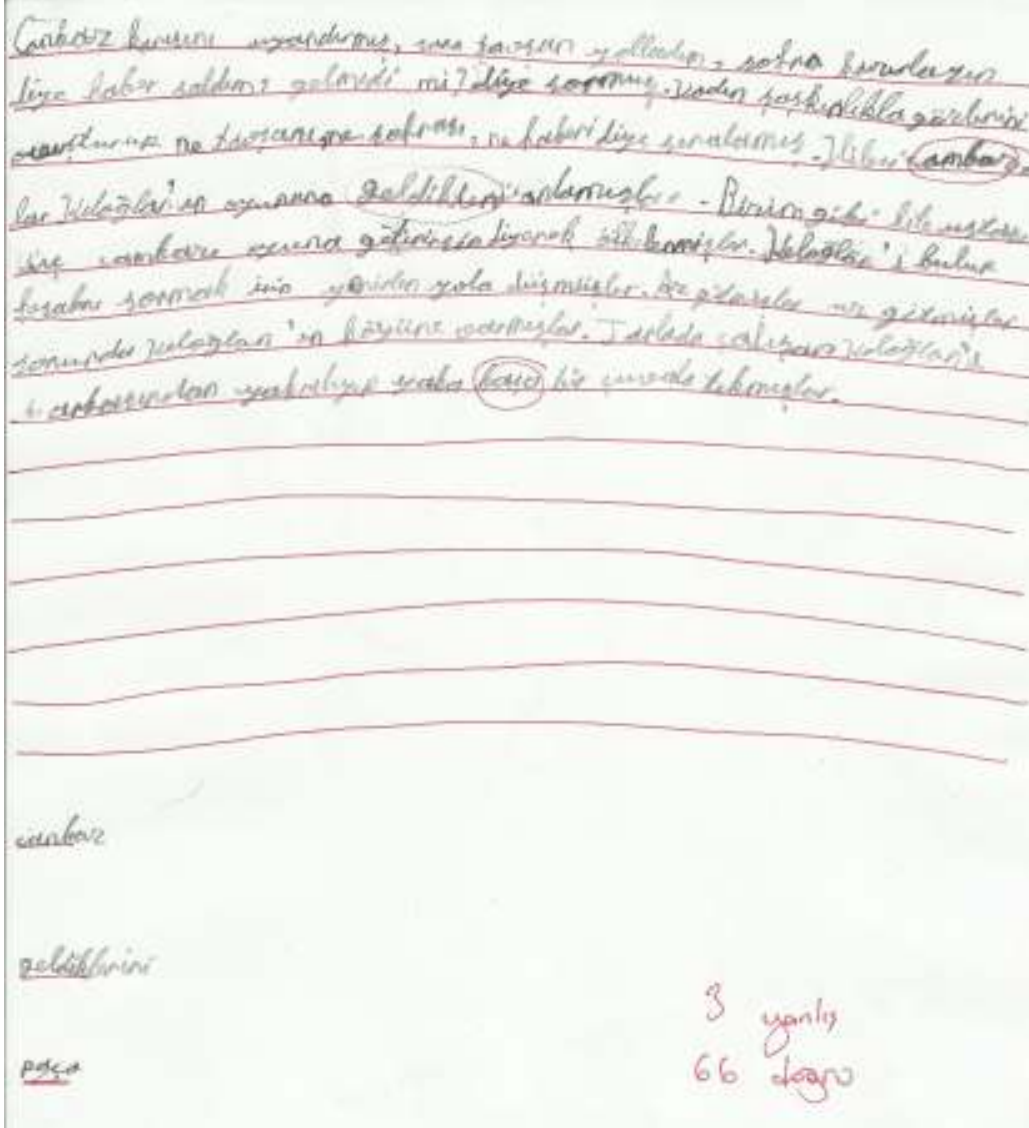 Canbaz karısını uyandırmış, sana tavşan yolladım, sofra hazırlayın
diye haber saldım? gelmedi mi? diye sormuş. Kadın şaşkınlıkla gözlerini
ne tavşanı ne sofrası, ne haberi diye sıralamış. İki cambaz
lar Keloğlan'ın oyununa geldiklini anlamışlar. - Bizim gibi hile ustası
üç cambazı oyuna getirirsin diyerek öfkelenmişler. Keloğlan'ı bulup
hesabını sormak için yeniden yola düşmüşler. Az gitmişler uz gitmişler
sonunda Keloğlan'ın köyüne varmışlar. Tarlada çalışan Keloğlan'ı
arkasından yakalayıp yaka baça bir çuvala tıkmışlar.
canbaz
geldiklerini
paça
3 yanlış
66 doğru